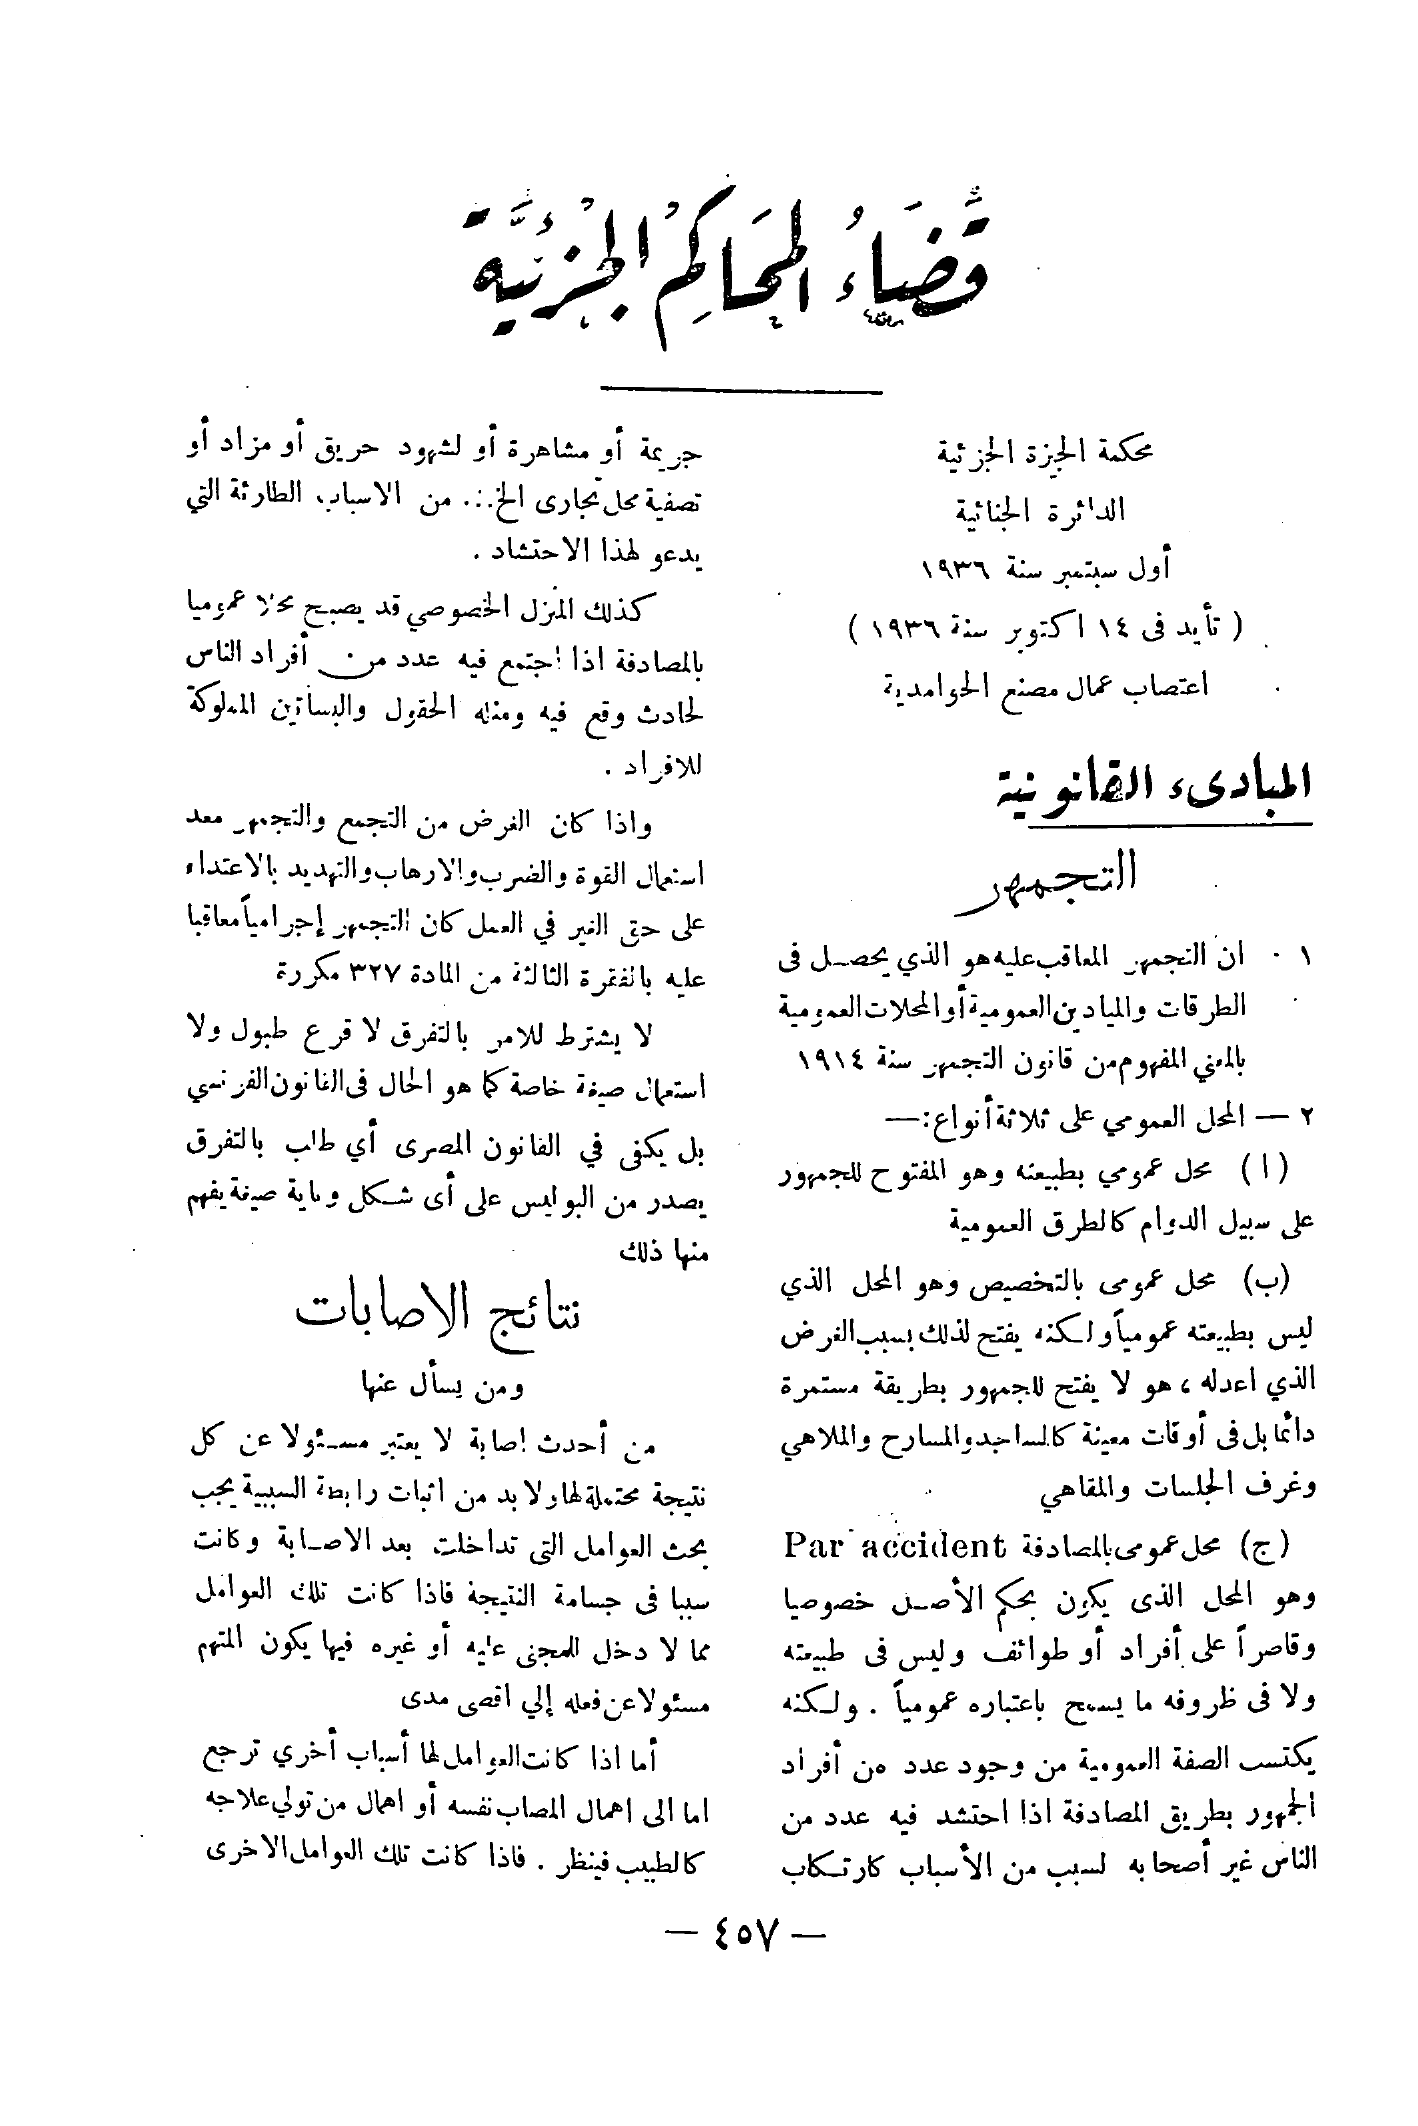 قَضَاءُ المَحَاكِمُ الجُزْئيَّة
محكمة الجيزة الجزئية
الدائرة الجنائية
أول سبتمبر سنة ١٩٣٦
( تأيد فى ١٤ اكتوبر سنة ١٩٣٦ )
اعتصاب عمال مصنع الحوامدية
المبادىء القانونية
التجمهر
١ · ان التجمهر المعاقب عليه هو الذي يحصل فى
الطرقات والميادين العمومية أو المحلات العمومية
بالمعني المفهوم من قانون التجمهر سنة ١٩١٤
٢ — المحل العمومي على ثلاثة أنواع :—
(ا) محل عمومي بطبيعته وهو المفتوح للجمهور
على سبيل الدوام كالطرق العمومية
(ب) محل عمومى بالتخصيص وهو المحل الذي
ليس بطبيعته عمومياً ولكنه يفتح لذلك بسبب الغرض
الذي اعدله ، هو لا يفتح للجمهور بطريقة مستمرة
دائما بل فى أوقات معينة كالمساجد والمسارح والملاهي
وغرف الجلسات والمقاهي
(ج) محل عمومى بالمصادفة Par accident
وهو المحل الذى يكون بحكم الأصل خصوصيا
وقاصراً على أفراد أو طوائف وليس فى طبيعته
ولا فى ظروفه ما يسمح باعتباره عمومياً . ولكنه
يكتسب الصفة العمومية من وجود عدد من أفراد
الجمهور بطريق المصادفة اذا احتشد فيه عدد من
الناس غير أصحابه لسبب من الأسباب كارتكاب
جريمة أو مشاهرة أو لشهود حريق أو مزاد أو
تصفية محل تجارى الخ... من الاسباب الطارئة التي
يدعو لهذا الاحتشاد .
كذلك المنزل الخصوصي قد يصبح محلا عموميا
بالمصادفة اذا اجتمع فيه عدد من أفراد الناس
لحادث وقع فيه ومثله الحقول والبساتين المملوكة
للافراد .
واذا كان الغرض من التجمع والتجمهر معد
استعمال القوة والضرب والارهاب والتهديد بالاعتداء
على حق الغير في العمل كان التجمهر إجرامياً معاقبا
عليه بالفقرة الثالثة من المادة ٣٢٧ مكررة
لا يشترط للامر بالتفرق لا قرع طبول ولا
استعمال صيغة خاصة كما هو الحال فى القانون الفرنسي
بل يكفى في القانون المصرى أي طلب بالتفرق
يصدر من البوليس على أى شكل وباية صيغة يفهم
منها ذلك
نتائج الاصابات
ومن يسأل عنها
من أحدث اصابة لا يعتبر مسئولا عن كل
نتيجة محتملة لها ولا بد من اثبات رابطة السببية يجب
بحث العوامل التى تداخلت بعد الاصابة وكانت
سببا فى جسامة النتيجة فاذا كانت تلك العوامل
مما لا دخل للمجنى عليه أو غيره فيها يكون المتهم
مسئولا عن فعله إلي اقصى مدى
أما اذا كانت العوامل لها أسباب أخري ترجع
اما الى اهمال المصاب نفسه أو اهمال من تولي علاجه
كالطبيب فينظر . فاذا كانت تلك العوامل الاخرى
— ٤٥٧ —